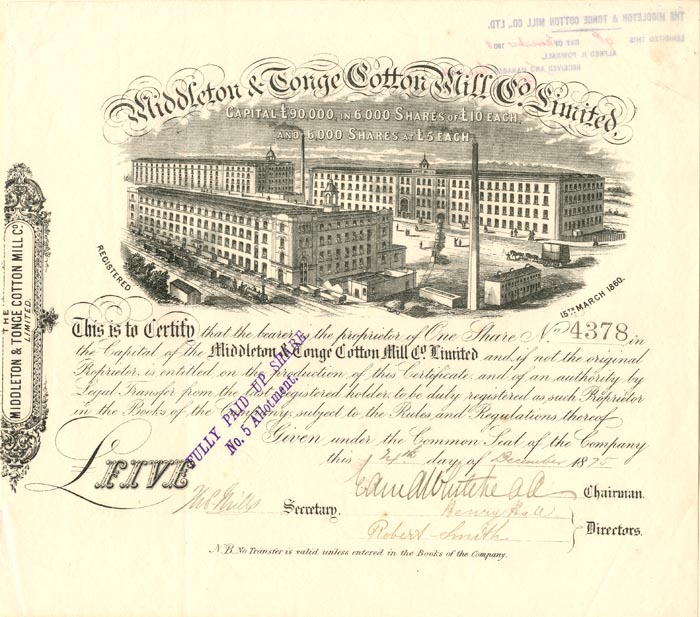 THE MIDDLETON & TONGE COTTON MILL CO., LTD.
EXHIBITED THIS
DAY OF 190
ALFRED H. POWNALL,
RECEIVER AND MANAGER
Middleton & Tonge Cotton Mill Co. Limited.
CAPITAL £90,000, IN 6000 SHARES OF £10 EACH,
AND 6000 SHARES AT £5 EACH.
REGISTERED
15TH MARCH 1860.
THE
MIDDLETON & TONGE COTTON MILL CO.
LIMITED.
This is to Certify that the bearer is the proprietor of One Share No. 4378 in
the Capital of the Middleton & Tonge Cotton Mill Co. Limited and, if not the original
Proprietor is entitled, on the production of this Certificate, and of an authority by
Legal Transfer from the last registered holder, to be duly registered as such Proprietor
in the Books of the Company, subject to the Rules and Regulations thereof
FULLY PAID UP SHARE
No. 5 Allotment.
Given under the Common Seal of the Company
this 24th day of December 1875
£FIVE
Secretary.
Chairman.
Henry Hall
Robert Smith
Directors.
N.B. No Transfer is valid unless entered in the Books of the Company.